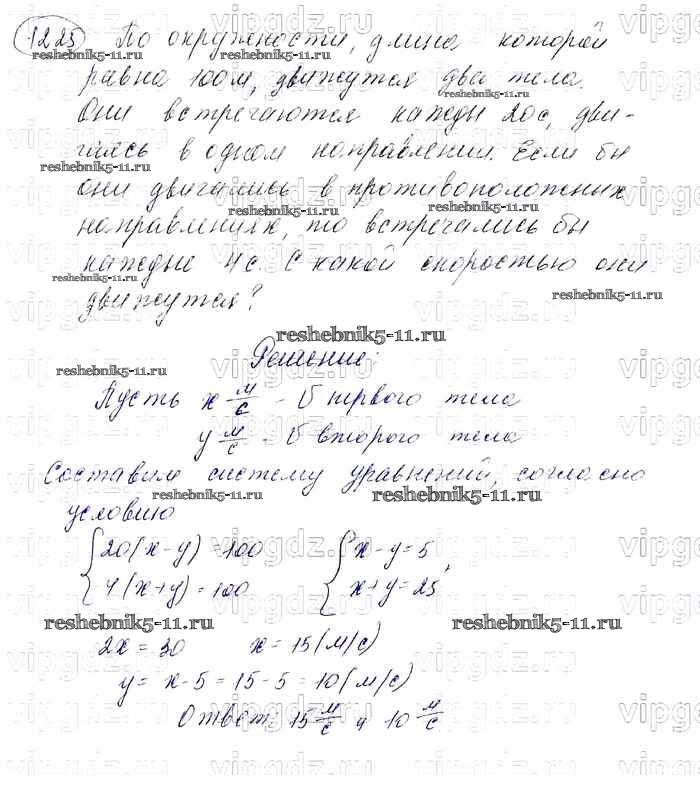 1225 По окружности, длина которой
равна 100м, движутся два тела.
Они встречаются каждые 20с, дви-
гаясь в одном направлении. Если бы
они двигались в противоположных
направлениях, то встречались бы
каждые 4с. С какой скоростью они
движутся?
Решение:
Пусть x м/с - υ первого тела
y м/с - υ второго тела
Составим систему уравнений, согласно
условию
{20(x-y)=100 {x-y=5,
{4(x+y)=100 {x+y=25
2x=30 x=15(м/с)
y= x-5=15-5=10(м/с)
Ответ: 15 м/с и 10 м/с
reshebnik5-11.ru
vipgdz.ru